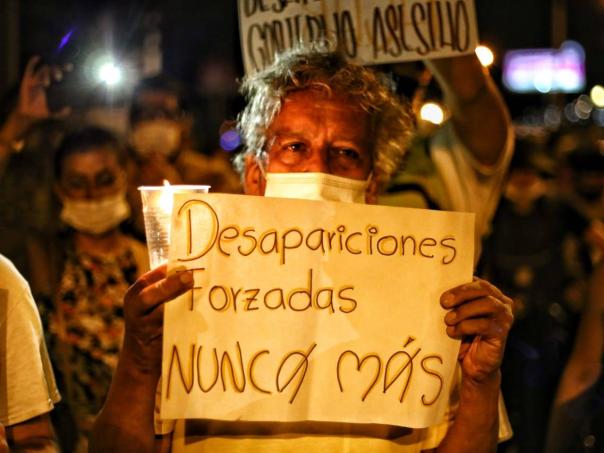 GOBIERNO ASESINO
Desapariciones
Forzadas
NUNCA MÁS